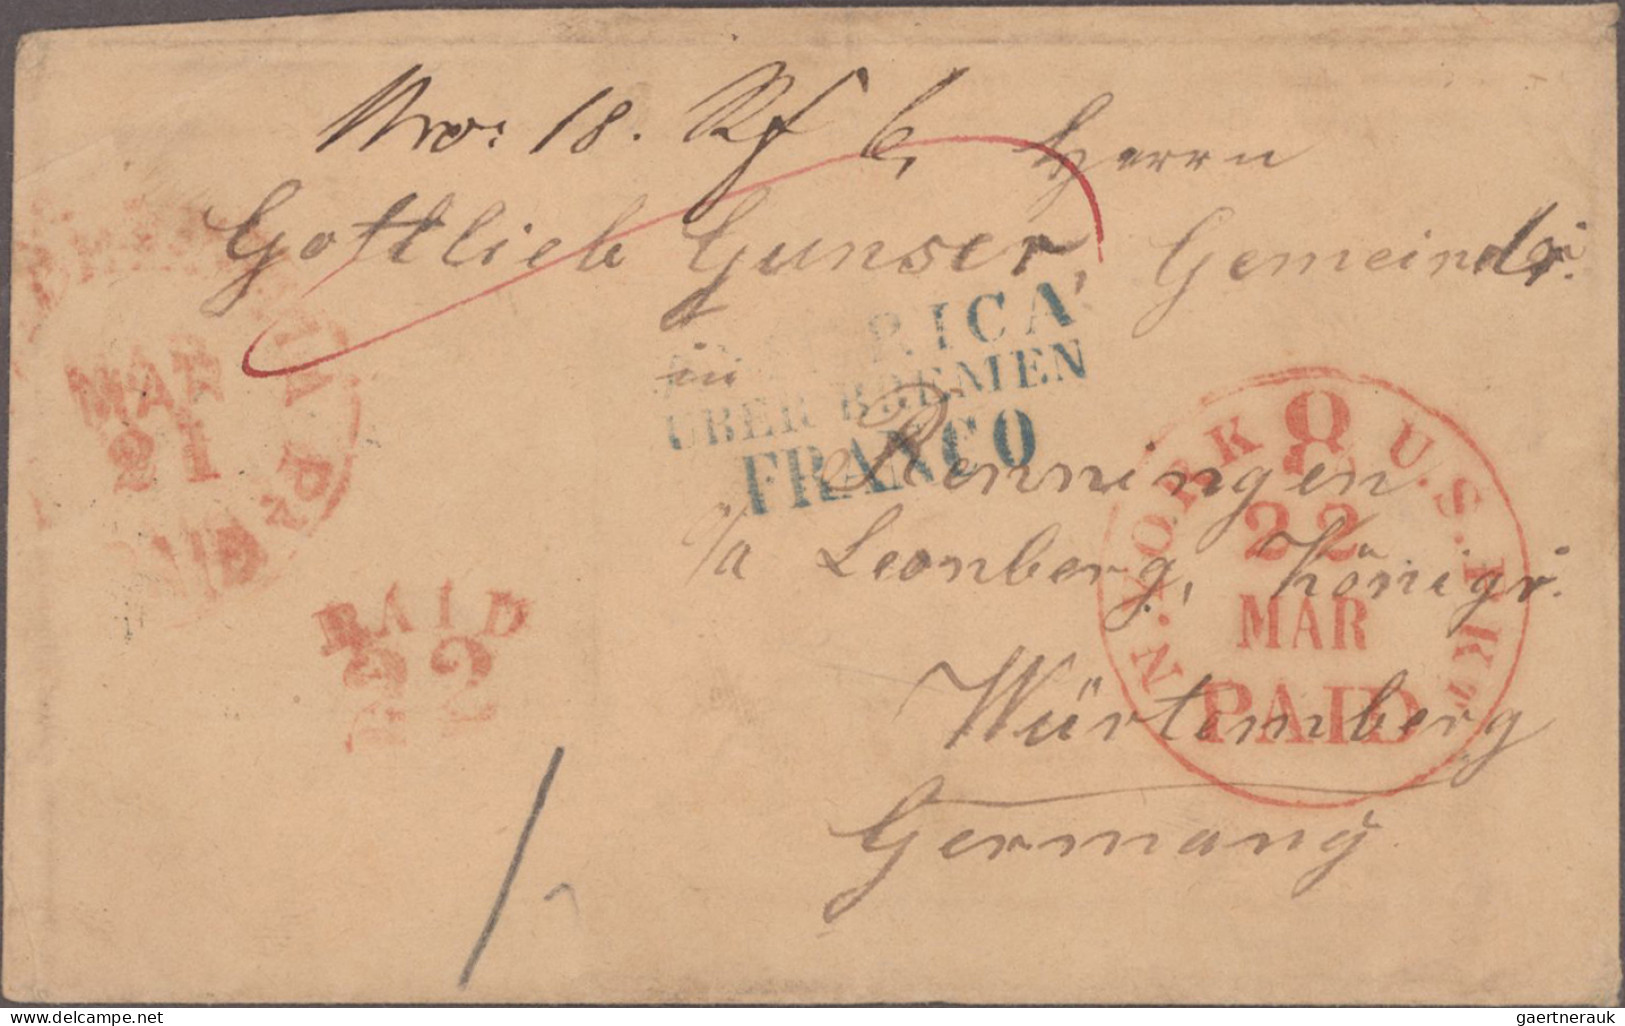 No: 18. Rf 6, Herrn
Gottlieb Gunser, Gemeinder.
in
Renningen
o/a Leonberg, Königr.
Würtemberg
Germany
RICA
UBER BREMEN
FRANCO
N. YORK 8 U.S. PKT
22
MAR
PAID
MAR
21
PAID
PA
PAID
22
gaertnerauk